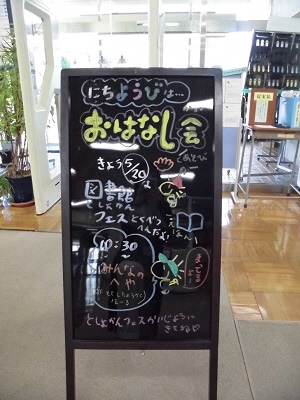 にちようびは…
おはなし会
てあそび
きょう5/20は
図書館
としょかん
フェスとくべつ
へんだよ!
えほん
10:30~
みんなの
へや
まってる
よー
としょかんフェスかいじょうに
きてね